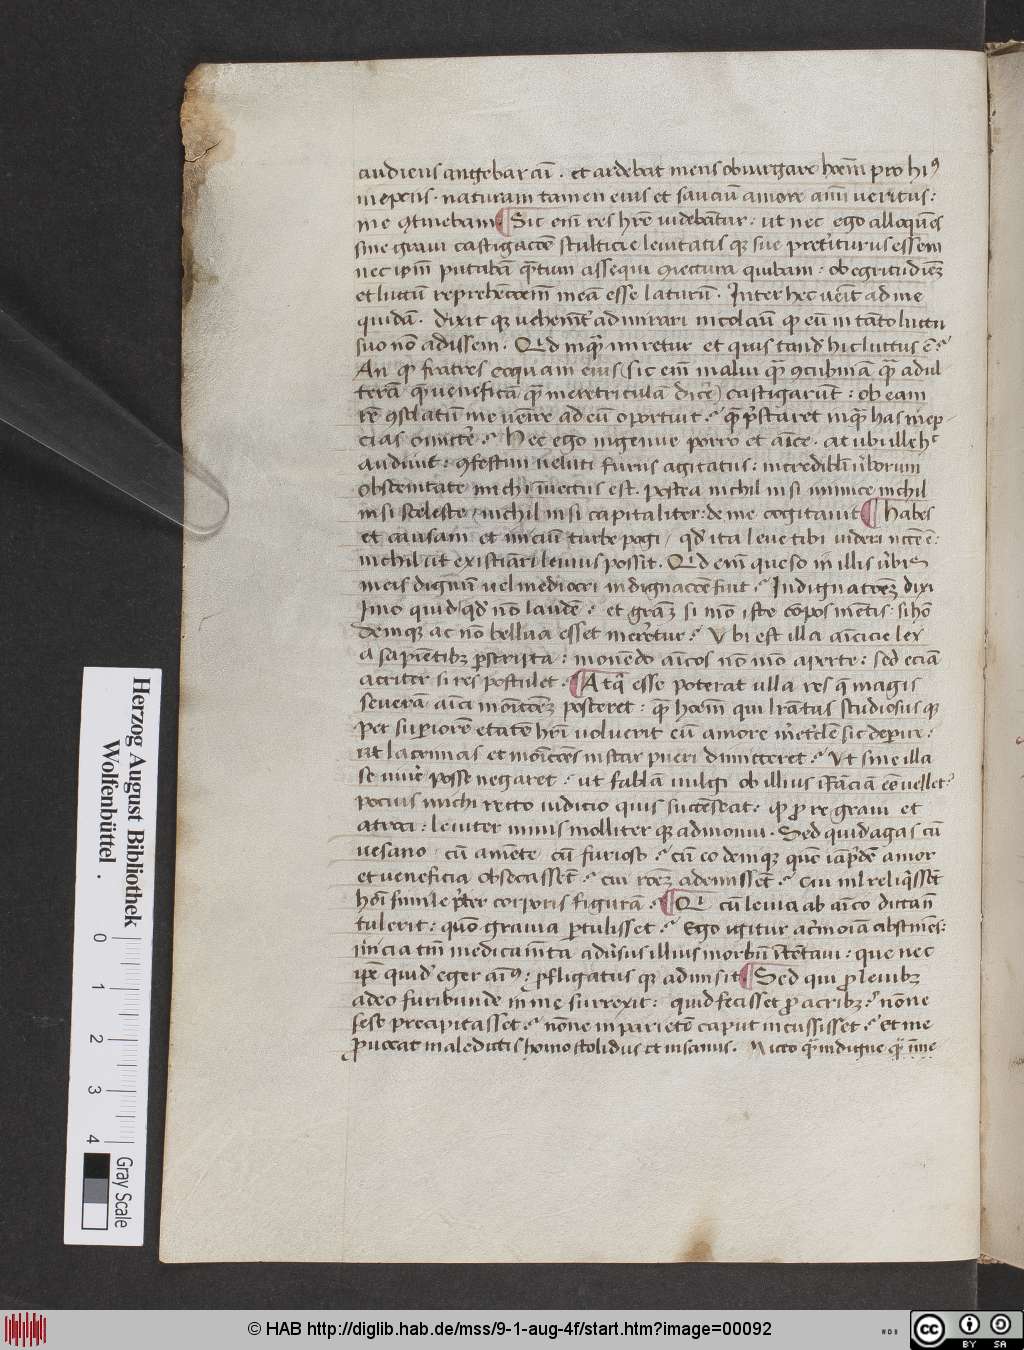 audiens angebar aī . et ardebat mens obiurgare hoēm pro hiꝰ
ineptiis . naturam tamen eius et sauciū amore anī ueritus :
me ꝯtinebam . ¶ Sic em̄ res hr̄e uidebāt̄ur : ut nec ego alloquēs
sine graui castigaccōe stulticie leuitatis qꝫ sue pretiturus essem
nec ip̄m putabā q̄tum assequi ꝯiectura quibam : ob egritudiēꝫ
et luctū reprehēccōem̄ meā esse laturū . Inter hec ueīt ad me
quidā . dixit qꝫ uehemēt̄ admirari nicolaū qꝙ eū in tāto luctu
suo nō adissem . Qid inquā miretur et quis tand̄ hic luctus ē ?
An qꝙ fratres coquam eius (sic em̄ malui qȝ ꝯcubinā qȝ adul
terā qȝ ueneficā qȝ meretriculā dicē) castigarūt : ob eam
rē ꝯsolatū me uenire ad eū oportuit ? qȝ p̄staret inquā has inep
cias omittē ? Hec ego ingenue porro et aīce . at ubi ille hͨ
audiuit : ꝯfestim ueluti furiis agitatus : incredibili ūborum
obscenitate michi īuectus est . postea nichil nisi inimice nichil
nisi sceleste / nichil nisi capitaliter : de me cogitauit ¶ habes
et causam et iniciū turbe pogi / qd̄ ita leue tibi uideri nccē ē :
nichil ut existiāri leuius possit . Qid em̄ queso in illis ūbis
meis dignū uel mediocri indignaccōe fuit ? Indignaccōeꝫ dixi
Imo quid qd̄ nō laude ? et grām si mō iste cōpos mētis : si hō
deniqꝫ ac nō bellua esset meretur ? Vbi est illa aīcicie lex
a sapiētibꝫ p̄scripta : monēdo aīcos nō mō aperte : sed eciā
acriter si res postulet . ¶ Atqī esse poterat ulla res q̄ magis
seuerā aīci moīccōeꝫ posceret : qȝ hoēm qui lrātus studiosus qꝫ
per supiorē etatē hr̄i uoluerit eū amore mer̄etricule sic deperire :
ut lacrimas et moīccōes instar pueri dimitteret ? Vt sine illa
se uiūe posse negaret ? ut fablā uulgi ob illius īfāciā eē uellet ?
pocius michi recto iudicio quis succēseat : qꝙ p re graui et
atroci : leuiter nimis molliter qꝫ admonui . Sed quid agas cū
uesano / cū amēte / cū furioso ? cū eo deniqꝫ quē iāp̄dē amor
et ueneficia obsecassēt ? cui rōeꝫ ademissēt ? cui nl̄ reliq̄ssēt
hoī simile p̄ter corporis figurā ? ¶ Qi cū leuia ab aīco dicta nō
tulerit : quō grauia ptulisset ? Ego igitur acrimoīā abstinēs :
iniciā tm̄ medicamīta adūsus illius morbū ītētaui : que nec
ip̄e quid eger aīꝰ : pfligatus qꝫ admisit . ¶ Sed qui p leuibꝫ
adeo furibunde in me surrexit : quid fecisset p acribꝫ ? nōne
sese precipitasset ? nōne in parietē caput incussisset ? et me
puocat maledictis homo stolidus et insanus . Nicto qȝ indigne qȝ inme
Herzog August Bibliothek
Wolfenbüttel .
0 1 2 3 4
Gray Scale
© HAB http://diglib.hab.de/mss/9-1-aug-4f/start.htm?image=00092
cc BY SA